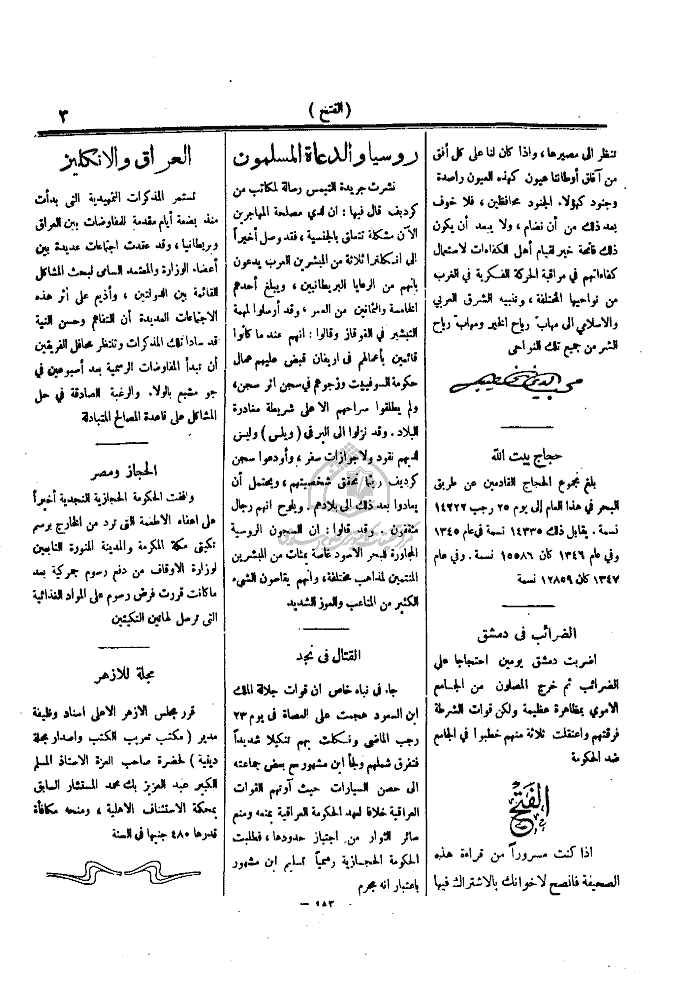 ٣
( الفتح )
تنظر الى مصيرها ، واذا كان لنا على كل أفق
من آفاق أوطاننا عيون كهذه العيون راصدة
وجنود كهؤلاء الجنود محافظين ، فلا خوف
بعد ذلك من أن نضام ، ولا يبعد أن يكون
ذلك فاتحة خير لقيام أهل الكفاءات لاستعمال
كفاءاتهم في مراقبة الحركة الفكرية في الغرب
من نواحيها المختلفة ، وتنبيه الشرق العربي
والاسلامي الى مهاب رياح الخير ومهاب رياح
الشر من جميع تلك النواحي
محب الدين الخطيب
حجاج بيت الله
بلغ مجموع الحجاج القادمين عن طريق
البحر في هذا العام إلى يوم ٢٥ رجب ١٤٢٢٢
نسمة . يقابل ذلك ١٤٣٣٥ نسمة في عام ١٣٤٥
وفي عام ١٣٤٦ كان ١٥٥٨٦ نسمة . وفي عام
١٣٤٧ كان ١٢٨٥٩ نسمة
الضرائب في دمشق
اضربت دمشق يومين احتجاجا على
الضرائب ثم خرج المصلون من الجامع
الاموي بمظاهرة عظيمة ولكن قوات الشرطة
فرقتهم واعتقلت ثلاثة منهم خطبوا في الجامع
ضد الحكومة
الفتح
اذا كنت مسروراً من قراءة هذه
الصحيفة فانصح لاخوانك بالاشتراك فيها
روسيا والدعاة المسلمون
نشرت جريدة التيمس رسالة لمكاتب من
كرديف قال فيها : ان لدي مصلحة المهاجرين
الآن مشكلة تتعلق بالجنسية ، فقد وصل أخيراً
الى انكلترا ثلاثة من المبشرين العرب يدعون
بانهم من الرعايا البريطانيين ، ويبلغ أحدهم
الخامسة والثمانين من العمر ، وقد أرسلوا لمهمة
التبشير في القوقاز وقالوا : انهم عند ما كانوا
قائمين بأعمالهم في اريفان قبض عليهم عمال
حكومة السوفييت وزجوهم في سجن اثر سجن ،
ولم يطلقوا سراحهم الا على شريطة مغادرة
البلاد . وقد نزلوا الى البر في ( ويلس ) وليس
لديهم نقود ولا جوازات سفر ، وأودعوا سجن
كرديف ريثما تحقق شخصيتهم ، ويحتمل أن
يعادوا بعد ذلك الى بلادهم . ويلوح انهم رجال
مثقفون . وقد قالوا : ان السجون الروسية
المجاورة للبحر الاسود غاصة بمئات من المبشرين
المنتمين لمذاهب مختلفة ، وانهم يقاصون الشيء
الكثير من المتاعب والعوز الشديد
القتال في نجد
جاء في نباء خاص ان قوات جلالة الملك
ابن السعود هجمت على العصاة في يوم ٢٣
رجب الماضي ونكلت بهم تنكيلا شديداً
فتفرق شملهم ولجأ ابن مشهور مع بعض جماعته
الى حصن السيارات حيث آوتهم القوات
العراقية خلافا لعهد الحكومة العراقية بمنعه ومنع
سائر الثوار من اجتياز حدودها ، فطلبت
الحكومة الحجازية رسمياً تسليم ابن مشهور
باعتبار انه مجرم
العراق والانكليز
تستمر المذكرات التمهيدية التى بدأت
منذ بضعة أيام مقدمة للمفاوضات بين العراق
وبريطانيا ، وقد عقدت اجتماعات عديدة بين
أعضاء الوزارة والمعتمد السامى لبحث المشاكل
القائمة بين الدولتين ، وأذيع على أثر هذه
الاجتماعات العديدة أن التفاهم وحسن النية
قد سادا تلك المذكرات وتنتظر محافل الفريقين
أن تبدأ المفاوضات الرسمية بعد أسبوعين في
جو مشبع بالولاء والرغبة الصادقة في حل
المشاكل على قاعدة المصالح المتبادلة
الحجاز ومصر
وافقت الحكومة الحجازية النجدية أخيراً
على اعفاء الاطعمة التى ترد من الخارج برسم
تكيتي مكة المكرمة والمدينة المنورة التابعين
لوزارة الاوقاف من دفع رسوم جمركية بعد
ماكانت قررت فرض رسوم على المواد الغذائية
التى ترسل لهاتين التكيتين
مجلة للازهر
قرر مجلس الازهر الاعلى اسناد وظيفة
مدير ( مكتب تعريب الكتب واصدار مجلة
دينية ) لحضرة صاحب العزة الاستاذ المسلم
الكبير عبد العزيز بك محمد المستشار السابق
بمحكمة الاستئناف الاهلية ، ومنحه مكافأة
قدرها ٤٨٠ جنيها في السنة
— ٤٨٣